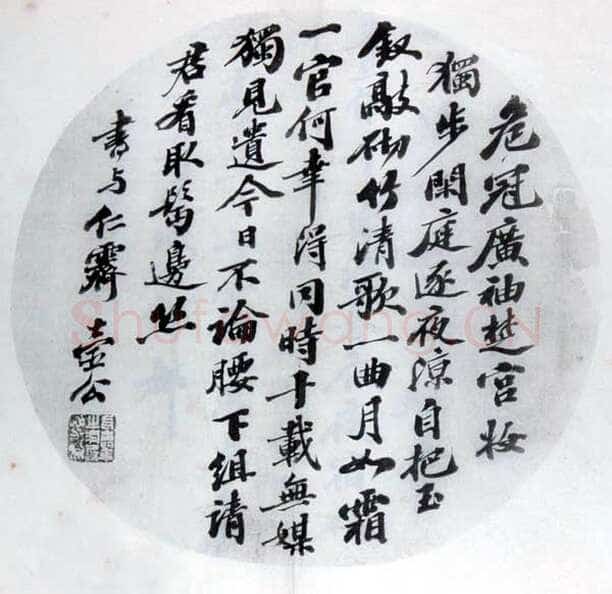 危冠廣袖楚宮妝
獨步閑庭逐夜涼自把玉
釵敲砌竹清歌一曲月如霜
一官何幸得同時十載無媒
獨見遺今日不論腰下組請
君看取鬢邊丝
書与仁霽 壺公
Shufawang.CN